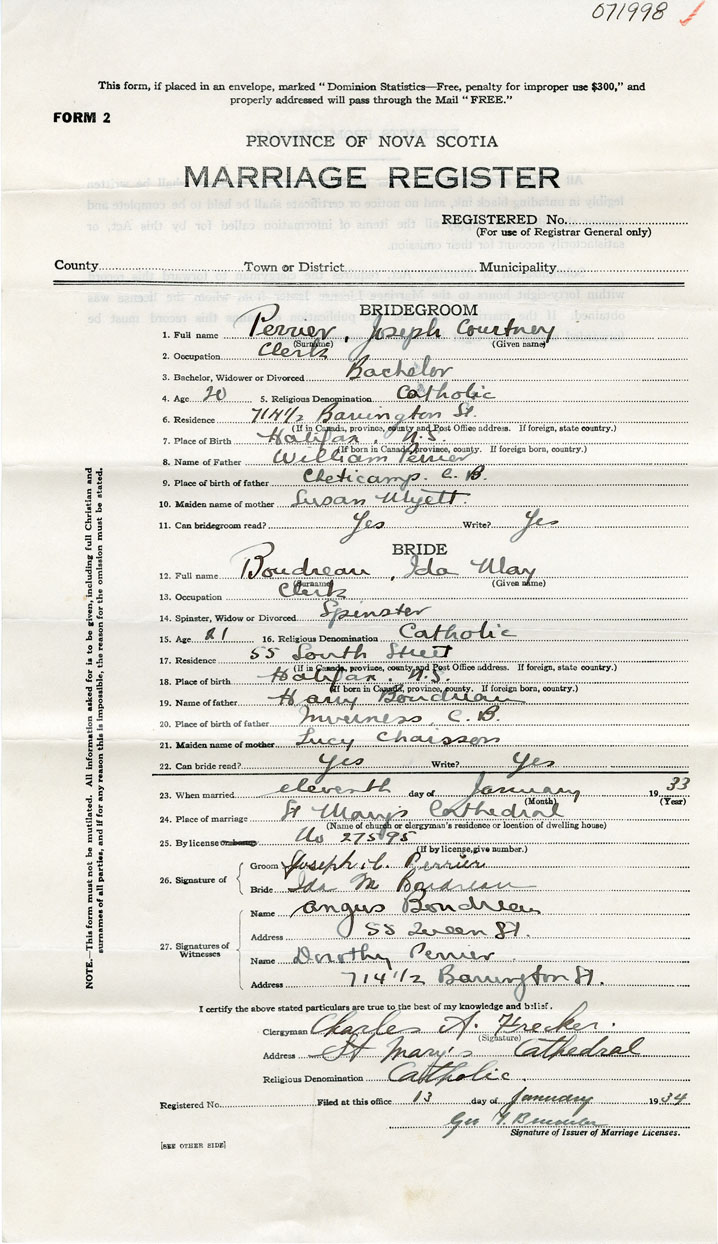 071998
This form, if placed in an envelope, marked "Dominion Statistics—Free, penalty for improper use $300," and
properly addressed will pass through the Mail "FREE."
FORM 2
PROVINCE OF NOVA SCOTIA
MARRIAGE REGISTER
REGISTERED No.
(For use of Registrar General only)
County Town or District Municipality
BRIDEGROOM
1. Full name Perrier, Joseph Courtney
(Surname) (Given name)
2. Occupation Clerk
3. Bachelor, Widower or Divorced Bachelor
4. Age 20 5. Religious Denomination Catholic
6. Residence 714½ Barrington St.
(If in Canada, province, county and Post Office address. If foreign, state country.)
7. Place of Birth Halifax, N.S.
(If born in Canada, province, county. If foreign born, country.)
8. Name of Father William Perrier
9. Place of birth of father Cheticamp. C. B.
10. Maiden name of mother Susan Myett.
11. Can bridegroom read? Yes Write? Yes
BRIDE
12. Full name Boudreau, Ida May
(Surname) (Given name)
13. Occupation Clerk
14. Spinster, Widow or Divorced Spinster
15. Age 21 16. Religious Denomination Catholic
17. Residence 55 South Street
(If in Canada, province, county and Post Office address. If foreign, state country.)
18. Place of birth Halifax, N.S.
(If born in Canada, province, county. If foreign born, country.)
19. Name of father Harry Boudreau
20. Place of birth of father Inverness, C. B.
21. Maiden name of mother Lucy Chaisson
22. Can bride read? Yes Write? Yes
23. When married eleventh day of January 1933
(Month) (Year)
24. Place of marriage St Mary's Cathedral
(Name of church or clergyman's residence or location of dwelling house)
25. By license or banns No 27595
(If by license, give number.)
26. Signature of Groom Joseph. C. Perrier
Bride Ida M Boudreau
27. Signatures of Witnesses
Name Angus Boudreau
Address 55 Queen St.
Name Dorothy Perrier
Address 714 1/2 Barrington St.
I certify the above stated particulars are true to the best of my knowledge and belief.
Clergyman Charles A. Frecker.
(Signature)
Address St Mary's Cathedral
Religious Denomination Catholic.
Registered No. Filed at this office 13 day of January 1934
Signature of Issuer of Marriage Licenses.
[SEE OTHER SIDE]
NOTE.—This form must not be mutilated. All information asked for is to be given, including full Christian and
surnames of all parties, and if for any reason this is impossible, the reason for the omission must be stated.